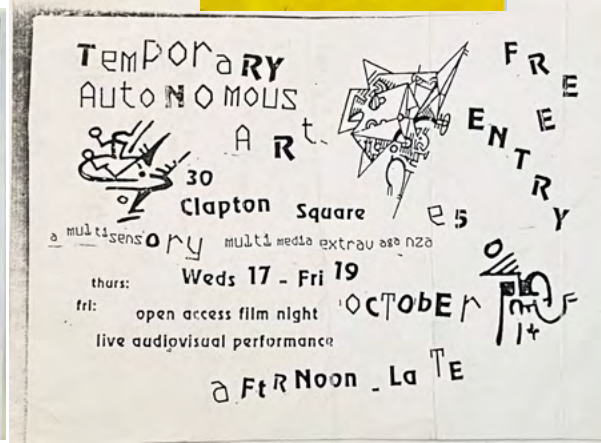 TEMPORARY
AUTONOMOUS
ART.
FREE
ENTRY
30
Clapton Square e5
a multisensory multi media extravaganza
Weds 17 - Fri 19
OCTOBER
thurs:
fri: open access film night
live audiovisual performance
aFtRNoon - LaTE